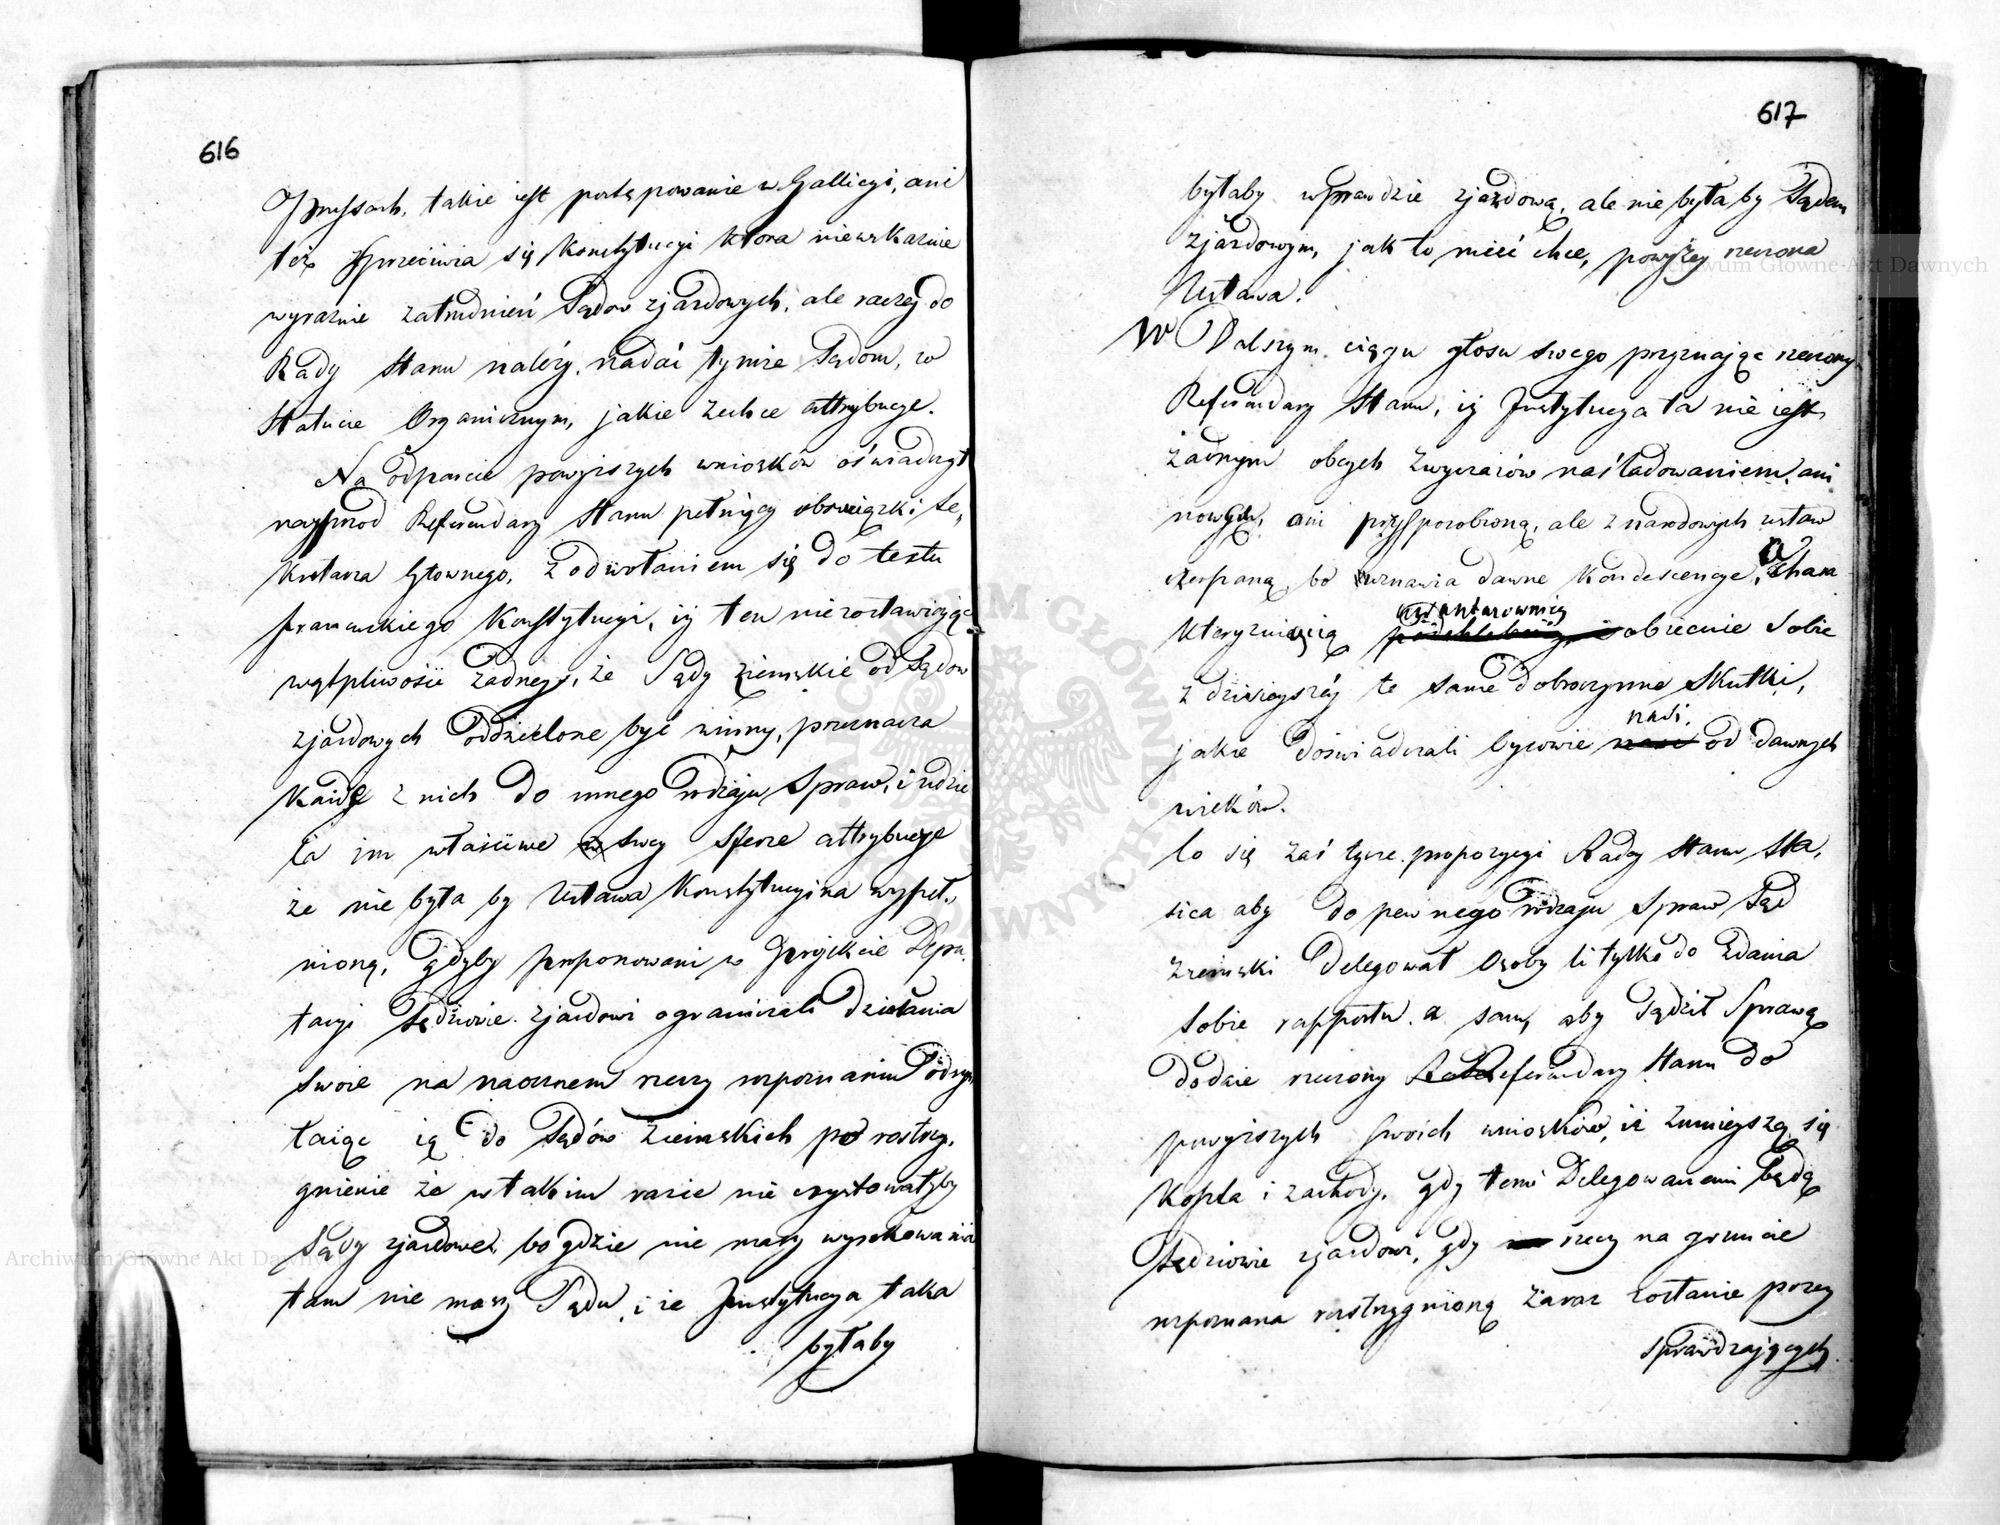 616
Prussach, takie jest postępowanie w Gallicyi, ani
też sprzeciwia się Konstytucyi która niewskaznie
wyraznie zatrudnień Sądow zjazdowych, ale raczej do
Rady Stanu należy nadać tymże Sądom, w
Statucie Organicznym, jakie zechce attrybucye.
Na odparcie powyższych wniosków oświadczył
nayprzod Referendarz Stanu pełniący obowiązki Se,
kretarza Głownego, z odwołaniem się do textu
francuskiego Konstytucyi, iż ten niezostawiając
wątpliwości żadney, że Sądy ziemskie od Sądow
zjazdowych oddzielone być winny, przeznacza
Każde z nich do innego rodzaju Spraw, i udzie
la im właściwe swey Sferze attrybucye
że nie była by Ustawa Konstytucyina wypeł,,
nioną, gdyby proponowani w Projekcie Depu,
taci Sędziowie zjazdowi ograniczali działania
swoie na naocznem rzeczy rozpoznaniu odsy
łaiąc ią do Sądów Ziemskich po rostrzy,
gnienie że w takim razie nie exystowałyby
Sądy zjazdowe, bo gdzie nie masz wyrokowania
tam nie masz Sądu, i że Instytucya taka
byłaby
617
byłaby wprawdzie zjazdową, ale nie była by Sądem
zjazdowym, jak to mieć chce, powyżey rzeczona
Ustawa.
W Dalszym ciągu głosu swego przyznając rzeczony
Referendarz Stanu, iż Instytucya ta nie jest
żadnym obcych zwyczaiów naśladowaniem, ani
nową, ani przysposobioną, ale z narodowych ustaw
czerpaną, bo wznawia dawne Kondescencye, a Chara
kteryzuiącią obiecuie Sobie
z dzisieyszéy te same dobroczynne Skutki,
nasi.
jakie doświadczali bycowie od dawnych
wieków.
Co się zaś tycze propozycyi Rady Stanu Sta,
sica aby do pewnego rodzaju Spraw Sąd
Ziemski Delegował Osoby li tylko do Zdania
Sobie rapportu a sam, aby Sądził Sprawę
dodaie rzeczony Referendarz Stanu do
powyższych swoich wniosków, iż zmnieyszą się
Koszta i zachody, gdy temi Delegowanemi będą
Sędziowie zjazdowi, gdy rzecz na gruncie
rozpoznana rostrzygnioną zaraz zostanie przez
sprawdzających
Archiwum Główne Akt Dawnych
Archiwum Główne Akt Dawnych